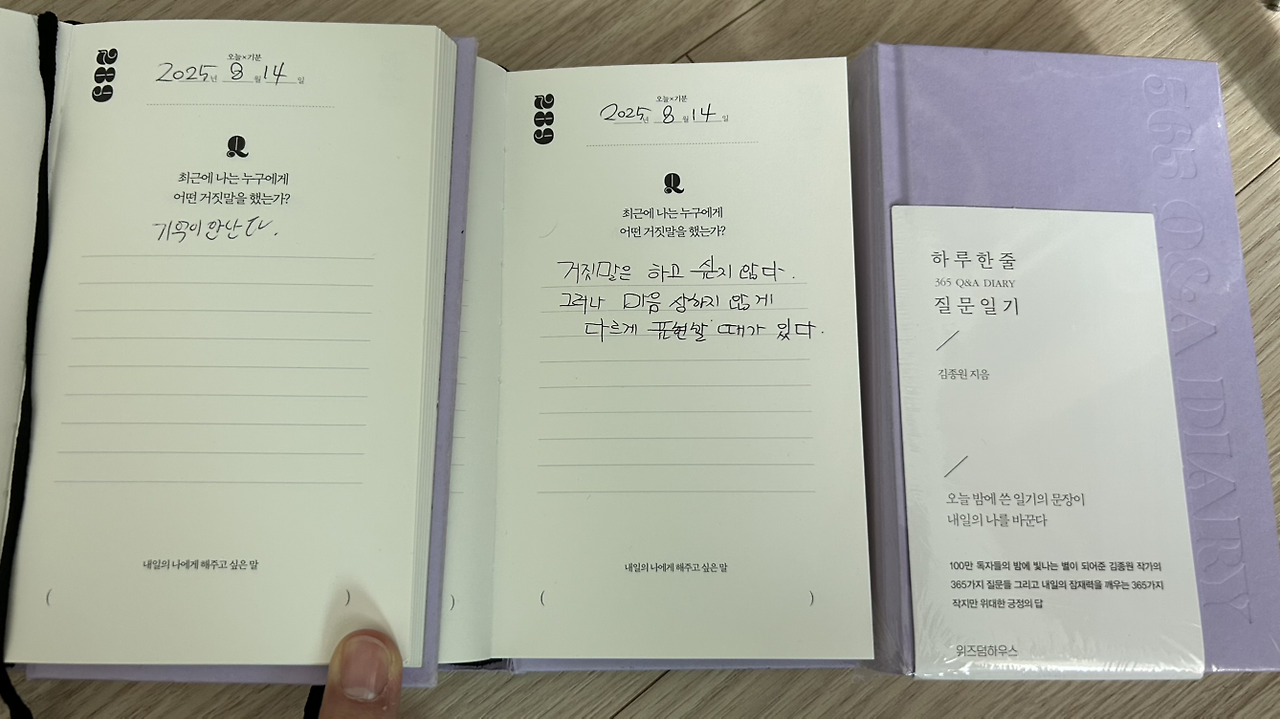 289
오늘×기분
2025년 8월 14일
Q
최근에 나는 누구에게
어떤 거짓말을 했는가?
기억이 안난다.
내일의 나에게 해주고 싶은 말
( )
289
오늘×기분
2025년 8월 14일
Q
최근에 나는 누구에게
어떤 거짓말을 했는가?
거짓말은 하고 싶지 않다.
그러나 마음 상하지 않게
다르게 표현할 때가 있다.
내일의 나에게 해주고 싶은 말
) ( )
365 Q&A DIARY
하루 한 줄
365 Q&A DIARY
질문 일기
김종원 지음
오늘 밤에 쓴 일기의 문장이
내일의 나를 바꾼다
100만 독자들의 밤에 빛나는 별이 되어준 김종원 작가의
365가지 질문들 그리고 내일의 잠재력을 깨우는 365가지
작지만 위대한 긍정의 답
위즈덤하우스